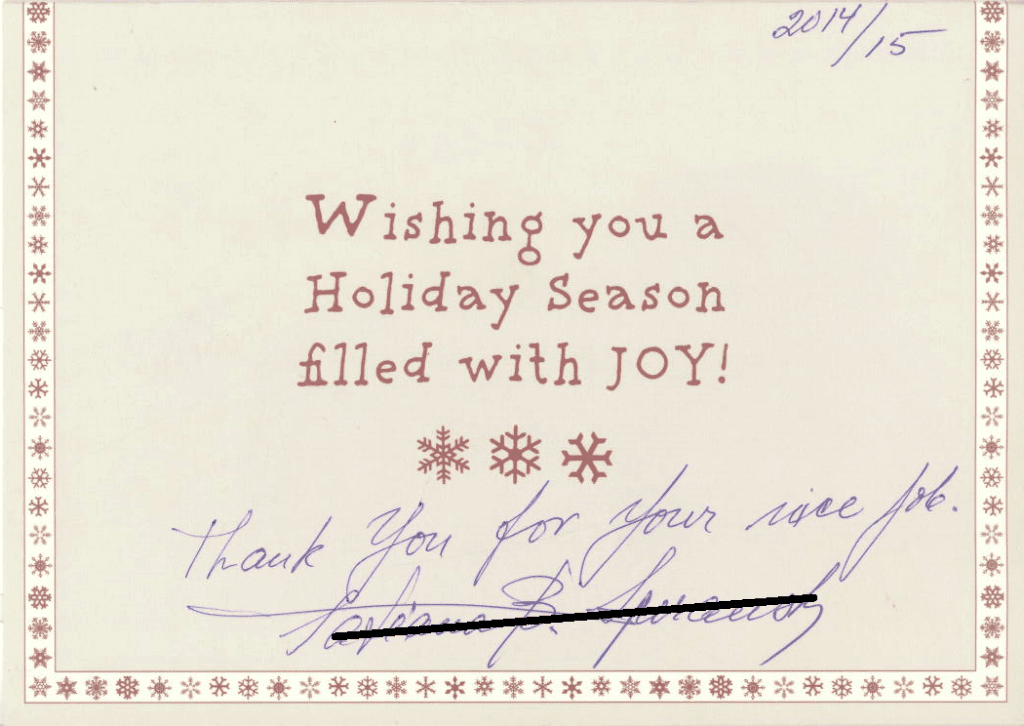 2014/15
Wishing you a
Holiday Season
filled with JOY!
Thank You for Your nice job.